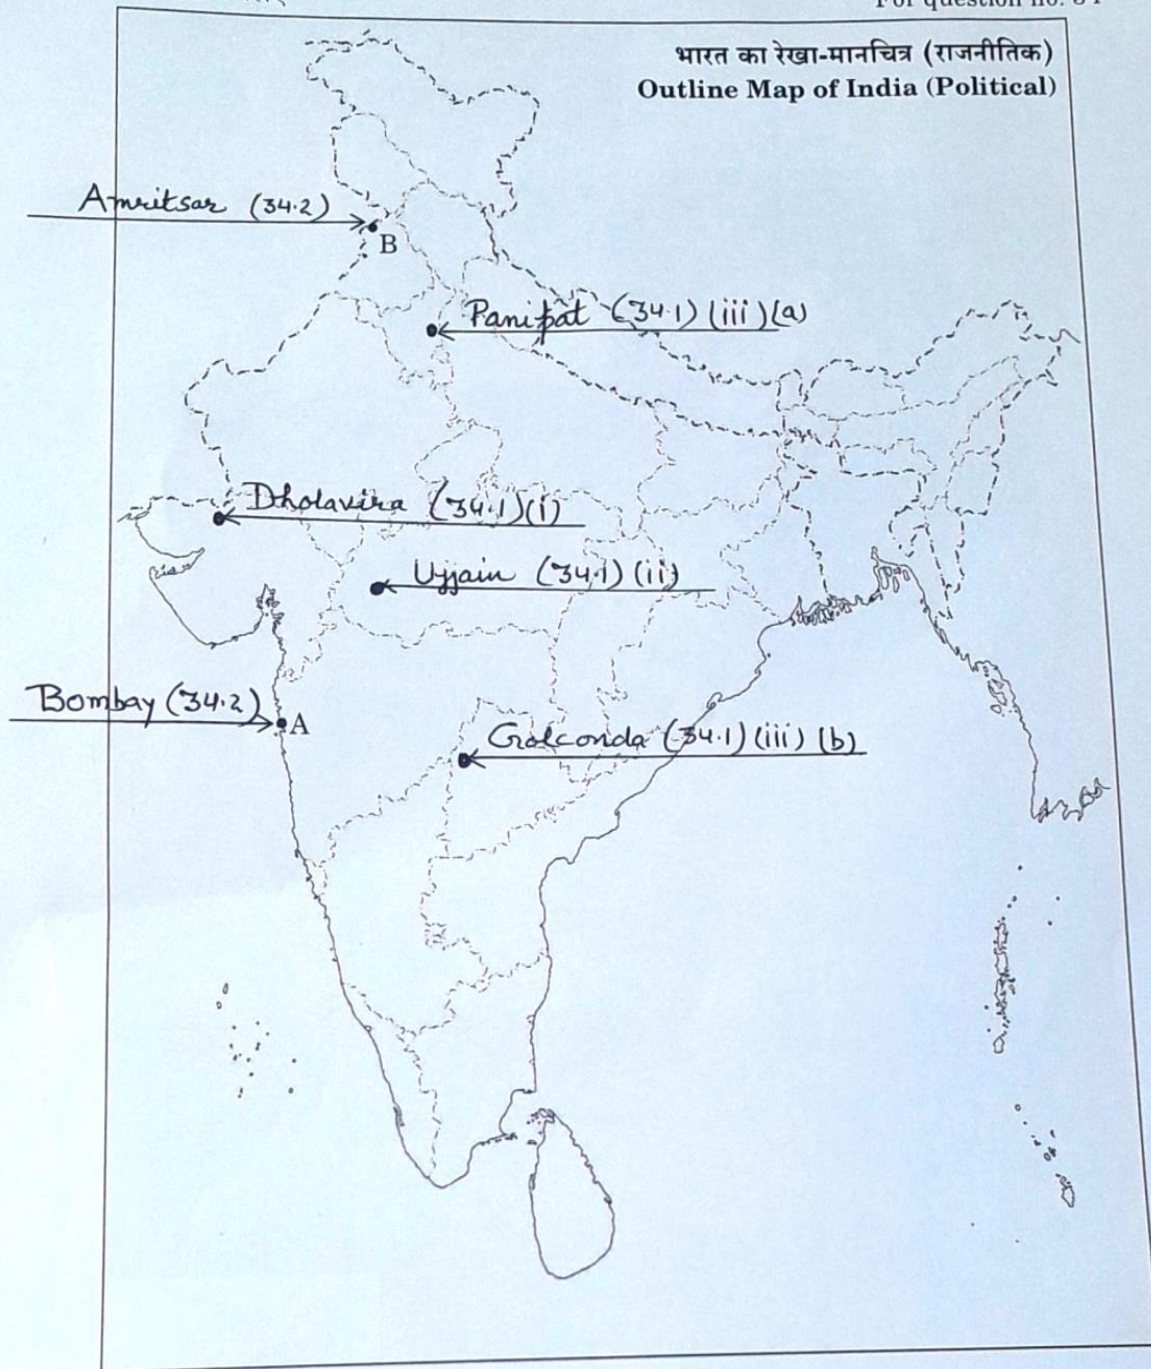 For question no. 34
भारत का रेखा-मानचित्र (राजनीतिक)
Outline Map of India (Political)
Amritsar (34.2)
B
Panipat (34.1) (iii) (a)
Dholavira (34.1) (i)
Ujjain (34.1) (ii)
Bombay (34.2)
A
Golconda (34.1) (iii) (b)